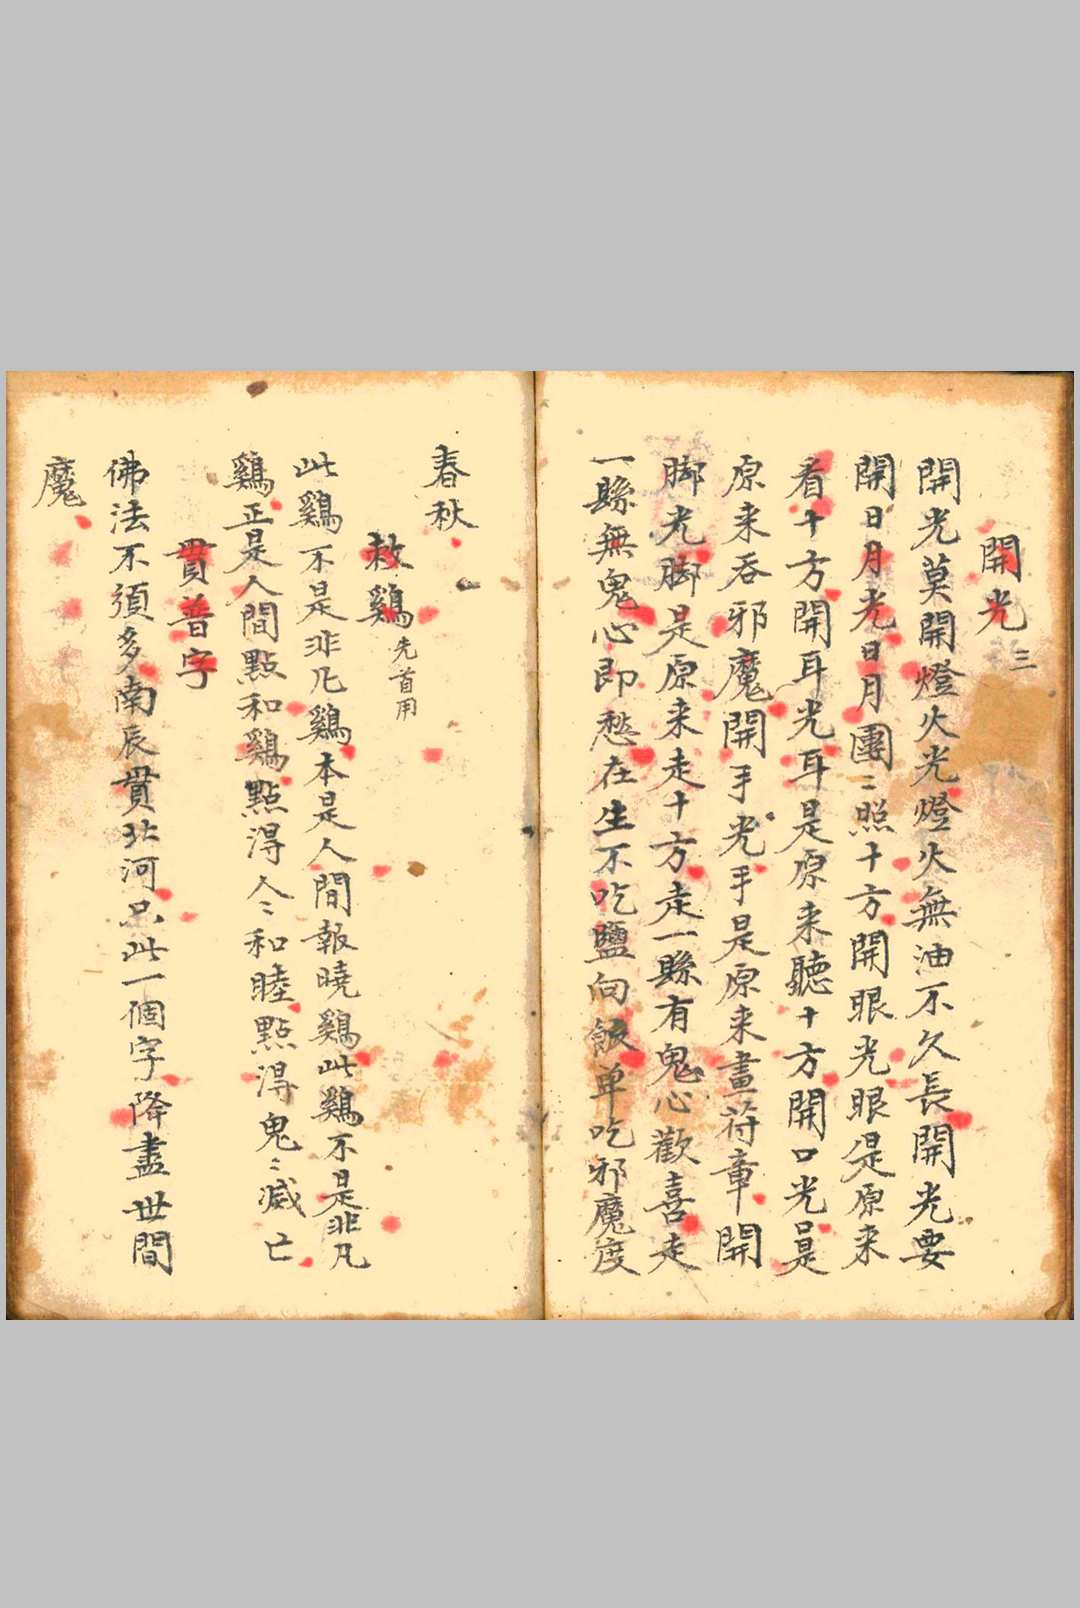 開光 三
開光莫開燈火光燈火無油不久長開光要
開日月光日月團〻照十方開眼光眼是原来
看十方開耳光耳是原来聽十方開口光是
原来吞邪魔開手光手是原来畫符章開
脚光脚是原来走十方走一縣有鬼心歡喜走
一縣無鬼心即愁在生不吃鹽向飯单吃邪魔度
春秋
敕鷄 先首用
此鷄不是非凡鷄本是人間報曉鷄此鷄不是非凡
鷄正是人間點和鷄點得人〻和睦點得鬼〻滅亡
貫普字
佛法不須多南辰貫北河只此一個字降盡世間
魔